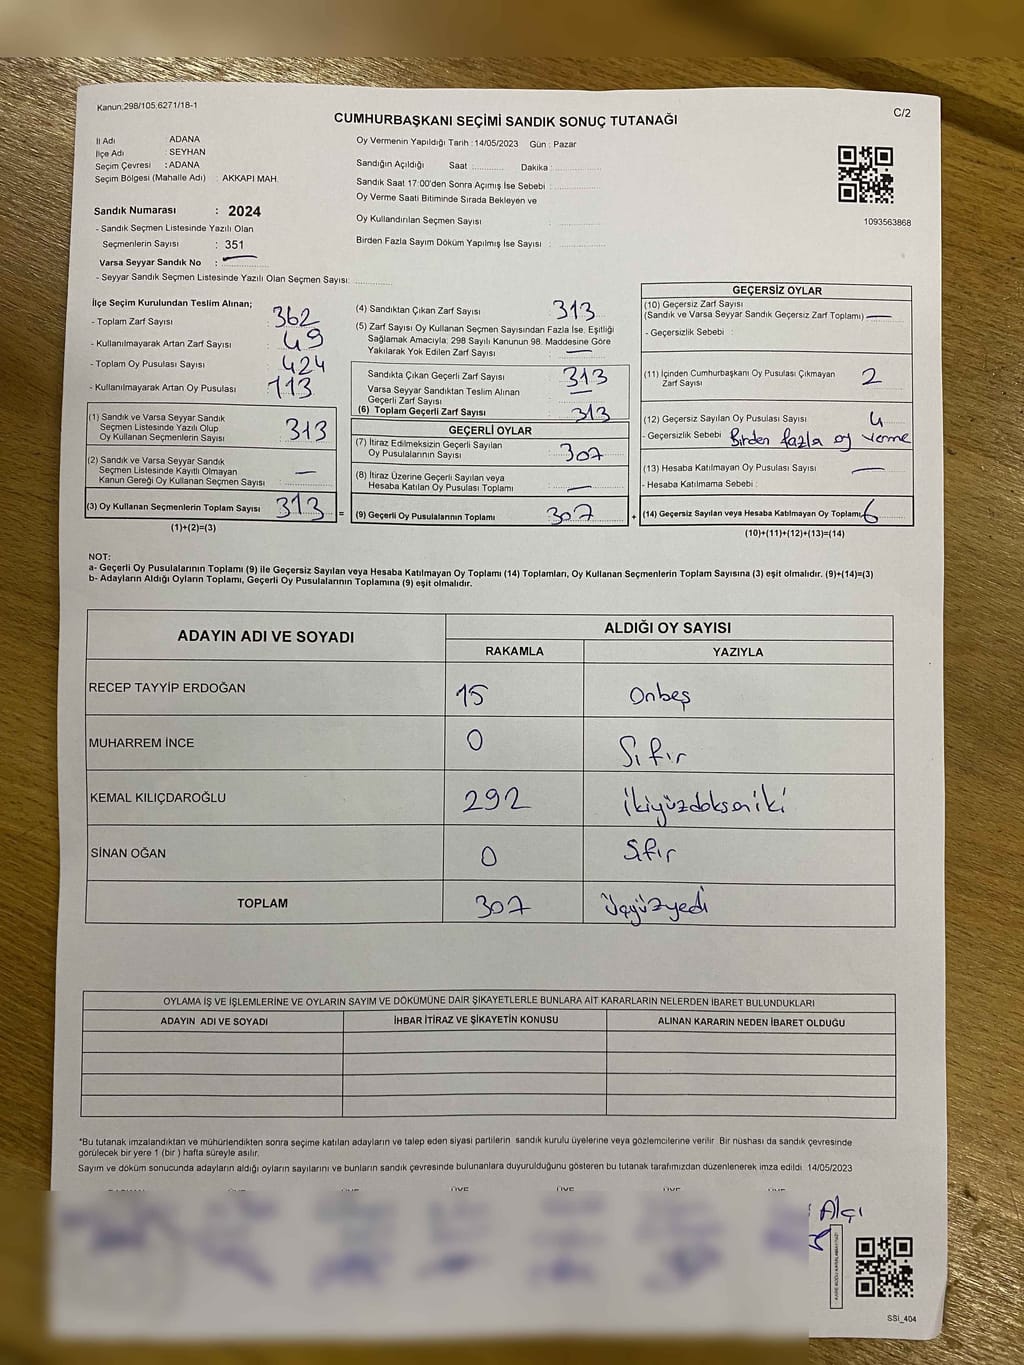 Kanun:298/105.6271/18-1
C/2
CUMHURBAŞKANI SEÇİMİ SANDIK SONUÇ TUTANAĞI
İl Adı : ADANA
İlçe Adı : SEYHAN
Seçim Çevresi : ADANA
Seçim Bölgesi (Mahalle Adı) : AKKAPI MAH.
Sandık Numarası : 2024
- Sandık Seçmen Listesinde Yazılı Olan
Seçmenlerin Sayısı : 351
Varsa Seyyar Sandık No : —
- Seyyar Sandık Seçmen Listesinde Yazılı Olan Seçmen Sayısı:
Oy Vermenin Yapıldığı Tarih : 14/05/2023 Gün : Pazar
Sandığın Açıldığı Saat : Dakika :
Sandık Saat 17:00'den Sonra Açımış İse Sebebi :
Oy Verme Saati Bitiminde Sırada Bekleyen ve
Oy Kullandırılan Seçmen Sayısı :
Birden Fazla Sayım Döküm Yapılmış İse Sayısı :
1093563868
İlçe Seçim Kurulundan Teslim Alınan;
- Toplam Zarf Sayısı : 362
- Kullanılmayarak Artan Zarf Sayısı : 49
- Toplam Oy Pusulası Sayısı : 424
- Kullanılmayarak Artan Oy Pusulası : 113
(1) Sandık ve Varsa Seyyar Sandık
Seçmen Listesinde Yazılı Olup
Oy Kullanan Seçmenlerin Sayısı : 313
(2) Sandık ve Varsa Seyyar Sandık
Seçmen Listesinde Kayıtlı Olmayan
Kanun Gereği Oy Kullanan Seçmen Sayısı : —
(3) Oy Kullanan Seçmenlerin Toplam Sayısı : 313
(1)+(2)=(3)
=
(4) Sandıktan Çıkan Zarf Sayısı : 313
(5) Zarf Sayısı Oy Kullanan Seçmen Sayısından Fazla İse, Eşitliği
Sağlamak Amacıyla; 298 Sayılı Kanunun 98. Maddesine Göre
Yakılarak Yok Edilen Zarf Sayısı : —
Sandıkta Çıkan Geçerli Zarf Sayısı : 313
Varsa Seyyar Sandıktan Teslim Alınan
Geçerli Zarf Sayısı : —
(6) Toplam Geçerli Zarf Sayısı : 313
GEÇERLİ OYLAR
(7) İtiraz Edilmeksizin Geçerli Sayılan
Oy Pusulalarının Sayısı : 307
(8) İtiraz Üzerine Geçerli Sayılan veya
Hesaba Katılan Oy Pusulası Toplamı : —
(9) Geçerli Oy Pusulalarının Toplamı : 307
+
GEÇERSİZ OYLAR
(10) Geçersiz Zarf Sayısı
(Sandık ve Varsa Seyyar Sandık Geçersiz Zarf Toplamı) : —
- Geçersizlik Sebebi :
(11) İçinden Cumhurbaşkanı Oy Pusulası Çıkmayan
Zarf Sayısı : 2
(12) Geçersiz Sayılan Oy Pusulası Sayısı : 4
- Geçersizlik Sebebi : Birden fazla oy verme
(13) Hesaba Katılmayan Oy Pusulası Sayısı : —
- Hesaba Katılmama Sebebi :
(14) Geçersiz Sayılan veya Hesaba Katılmayan Oy Toplamı : 6
(10)+(11)+(12)+(13)=(14)
NOT:
a- Geçerli Oy Pusulalarının Toplamı (9) ile Geçersiz Sayılan veya Hesaba Katılmayan Oy Toplamı (14) Toplamları, Oy Kullanan Seçmenlerin Toplam Sayısına (3) eşit olmalıdır. (9)+(14)=(3)
b- Adayların Aldığı Oyların Toplamı, Geçerli Oy Pusulalarının Toplamına (9) eşit olmalıdır.
ADAYIN ADI VE SOYADI
ALDIĞI OY SAYISI
RAKAMLA YAZIYLA
RECEP TAYYİP ERDOĞAN 15 Onbeş
MUHARREM İNCE 0 Sıfır
KEMAL KILIÇDAROĞLU 292 ikiyüzdoksaniki
SİNAN OĞAN 0 Sıfır
TOPLAM 307 üçyüzyedi
OYLAMA İŞ VE İŞLEMLERİNE VE OYLARIN SAYIM VE DÖKÜMÜNE DAİR ŞİKAYETLERLE BUNLARA AİT KARARLARIN NELERDEN İBARET BULUNDUKLARI
ADAYIN ADI VE SOYADI İHBAR İTİRAZ VE ŞİKAYETİN KONUSU ALINAN KARARIN NEDEN İBARET OLDUĞU
*Bu tutanak imzalandıktan ve mühürlendikten sonra seçime katılan adayların ve talep eden siyasi partilerin sandık kurulu üyelerine veya gözlemcilerine verilir. Bir nüshası da sandık çevresinde
görülecek bir yere 1 (bir ) hafta süreyle asılır.
Sayım ve döküm sonucunda adayların aldığı oyların sayılarını ve bunların sandık çevresinde bulunanlara duyurulduğunu gösteren bu tutanak tarafımızdan düzenlenerek imza edildi. 14/05/2023
ÜYE ÜYE ÜYE
Alçı
SSİ_404